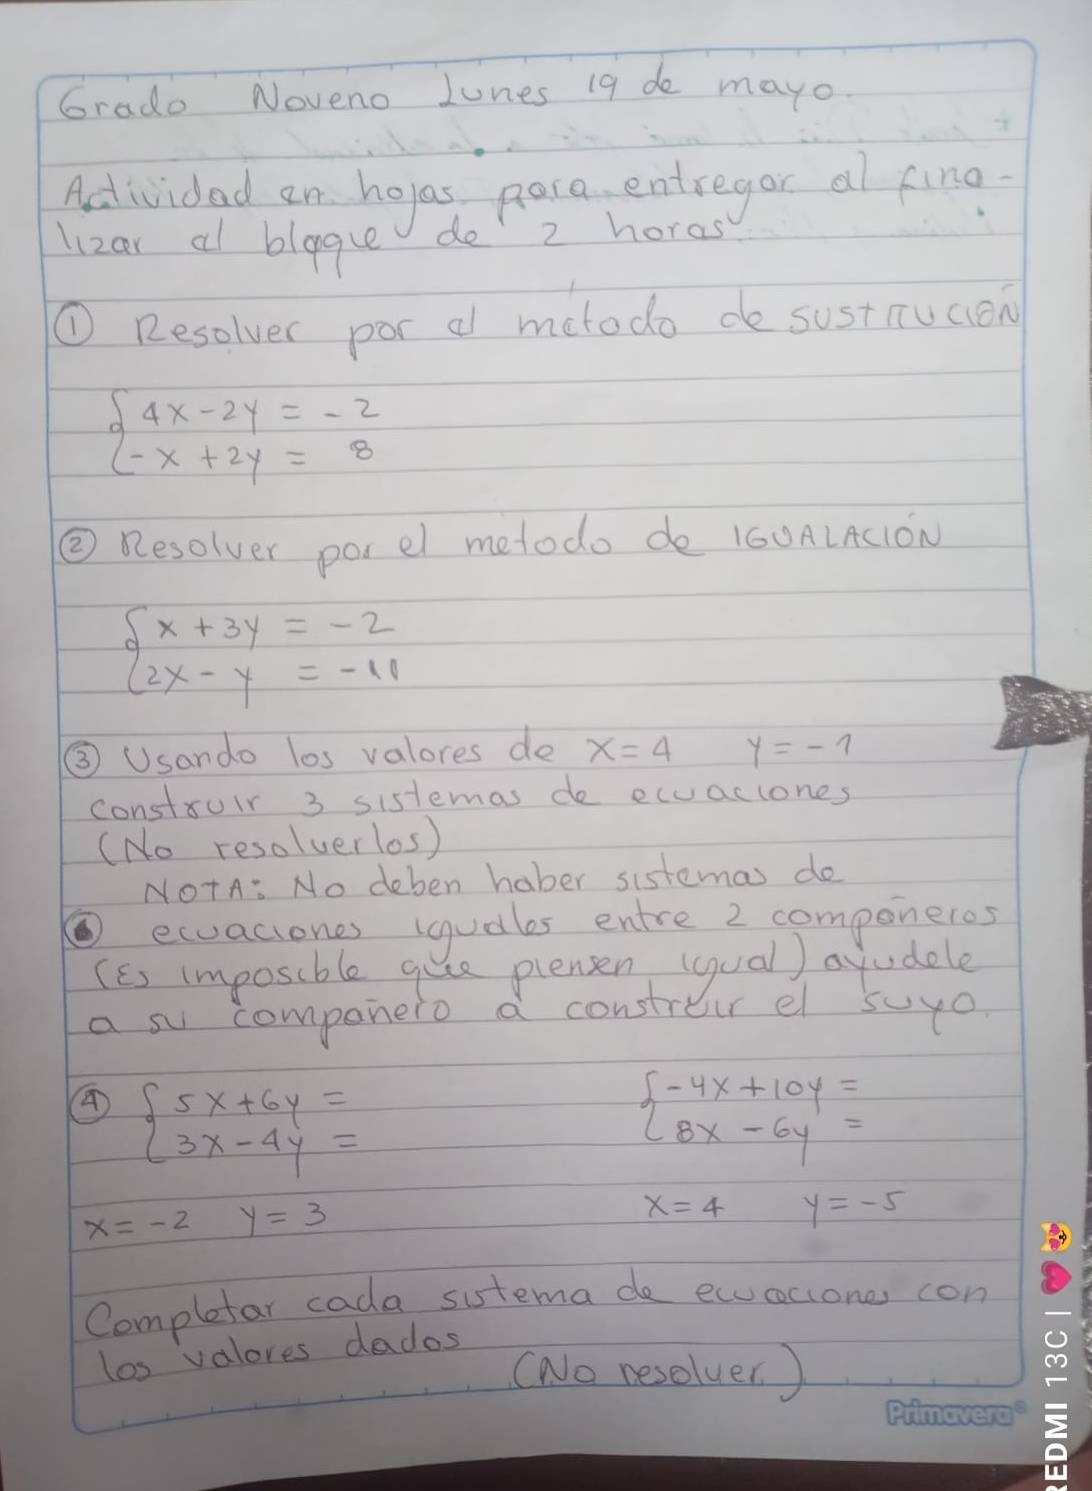 Grado Noveno Lunes 19 de mayo.
Actividad en hojas para entregar al fina-
lizar el bloque de 2 horas.
① Resolver por el método de SUSTITUCIÓN
4x - 2y = -2
-x + 2y = 8
② Resolver por el metodo de IGUALACIÓN
x + 3y = -2
2x - y = -11
③ Usando los valores de x = 4 y = -1
construir 3 sistemas de ecuaciones
(No resolverlos)
NOTA: No deben haber sistemas de
ecuaciones iguales entre 2 compañeros
(Es imposible que piensen igual) ayudele
a su compañero a construir el suyo.
④ 5x + 6y = -4x + 10y =
3x - 4y = 8x - 6y =
x = -2 y = 3 x = 4 y = -5
Completar cada sistema de ecuaciones con
los valores dados
(No resolver)
Primavera®
REDMI 13C |